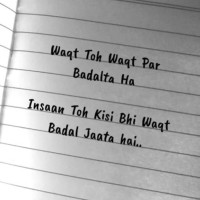 Waqt Toh Waqt Par
Badalta Ha
Insaan Toh Kisi Bhi Waqt
Badal Jaata hai..